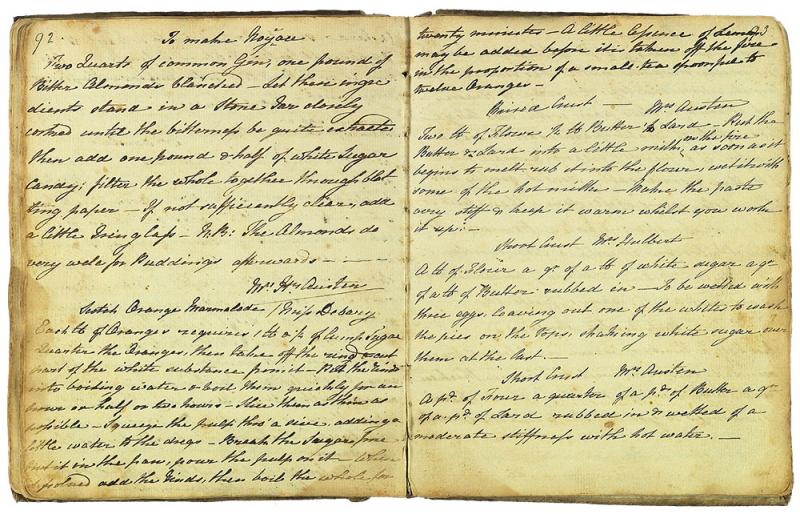 92.
To make Noyaee
Two Quarts of common Gin, one pound of
Bitter Almonds blanched – Let these ingre
dients stand in a Stone Jar closely
corked until the bitterness be quite extracted
then add one pound & half of white Sugar
Candy; filter the whole together through blot
ting paper – If not sufficiently clear, add
a little Isinglass – N.B: The Almonds do
very well for Puddings afterwards –
Mrs. Hy. Austen
Scotch Orange Marmalade / Miss Debary
Each lb of Oranges requires 1 lb of Lump Sugar
Quarter the Oranges, then take off the rind & cut
part of the white substance from it – Put the rinds
into boiling water & boil them quickly for an
hour or half or two hours – Slice them as thin as
possible – Squeeze the pulp thro' a sieve, adding a
little water to the dregs – Break the Sugar fine
put it in the pan, pour the pulp on it – when
dissolved add the rinds, then boil the whole for
93
twenty minutes – A little Essence of Lemon
may be added before it is taken off the fire
in the proportion of a small tea spoonful to
twelve Oranges –
Raised Crust – Mrs Austen
Two lb of Flour ½ lb Butter ¼ Lard – Put the
Butter & Lard into a little milk, on the fire as soon as it
begins to melt rub it into the flour, wet it with
some of the hot milk – Make the paste
very stiff & keep it warm whilst you work
it up: –
Short Crust Mrs Hulbert
A lb of Flour a qr. of a lb of white sugar a qr.
of a lb of Butter rubbed in – To be wetted with
three eggs, leaving out one of the whites to wash
the pies on the tops, shaking white sugar over
them at the last –
Short Crust Mrs Austen
A pd. of flour a quarter of a pd. of Butter a qr.
of a pd. of Lard rubbed in & wetted of a
moderate stiffness with hot water –